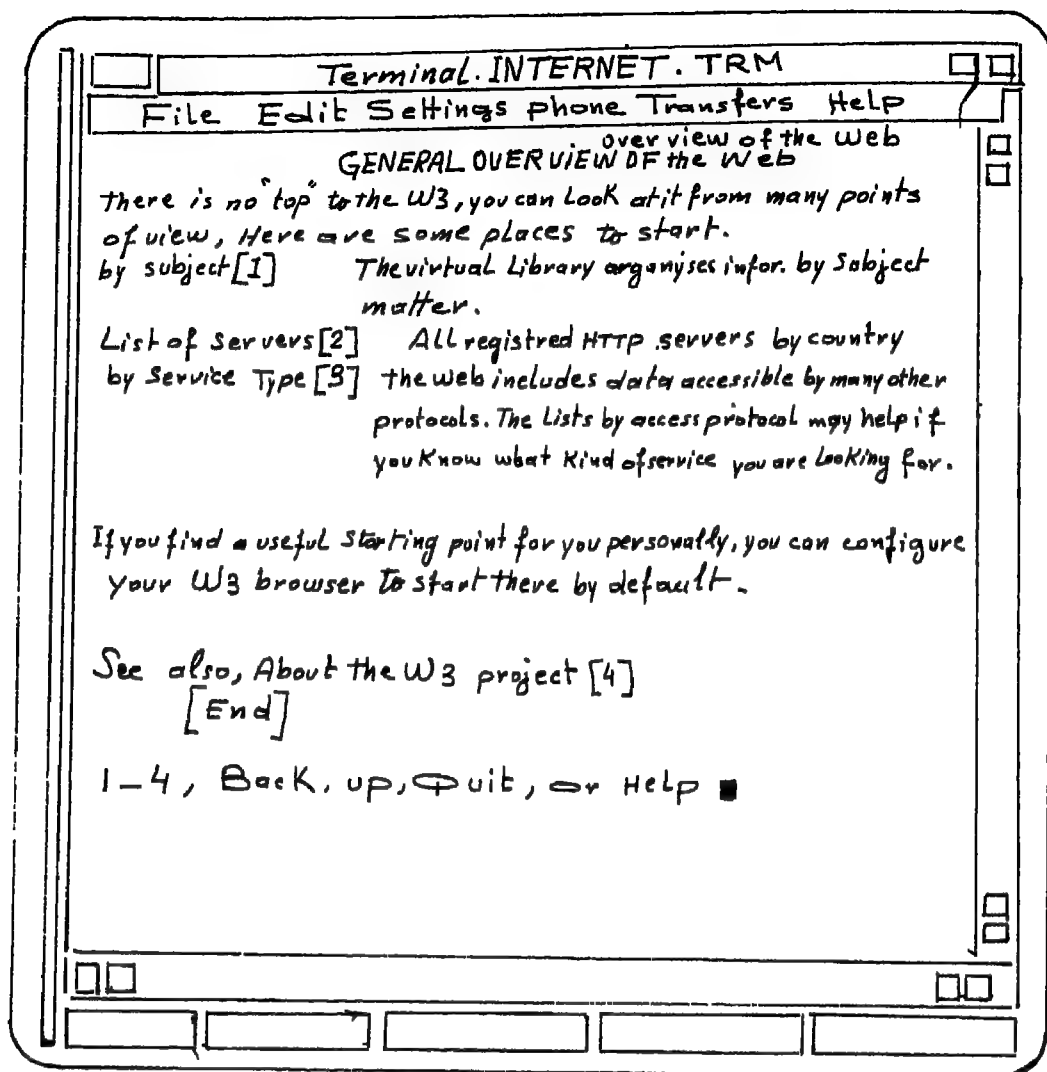 Terminal.INTERNET.TRM
File Edit Settings phone Transfers Help
over view of the Web
GENERAL OVERVIEW OF the Web
there is no "top" to the W3, you can Look at it from many points
of view, Here are some places to start.
by subject [1] The virtual Library organyses infor. by Subject
matter.
List of Servers [2] All registred HTTP servers by country
by Service Type [3] the web includes data accessible by many other
protocols. The Lists by access protocol may help if
you Know what Kind of service you are Looking for.
If you find a useful Starting point for you personally, you can configure
your W3 browser To start there by default.
See also, About the W3 project [4]
[End]
1-4, Back, up, Quit, or Help